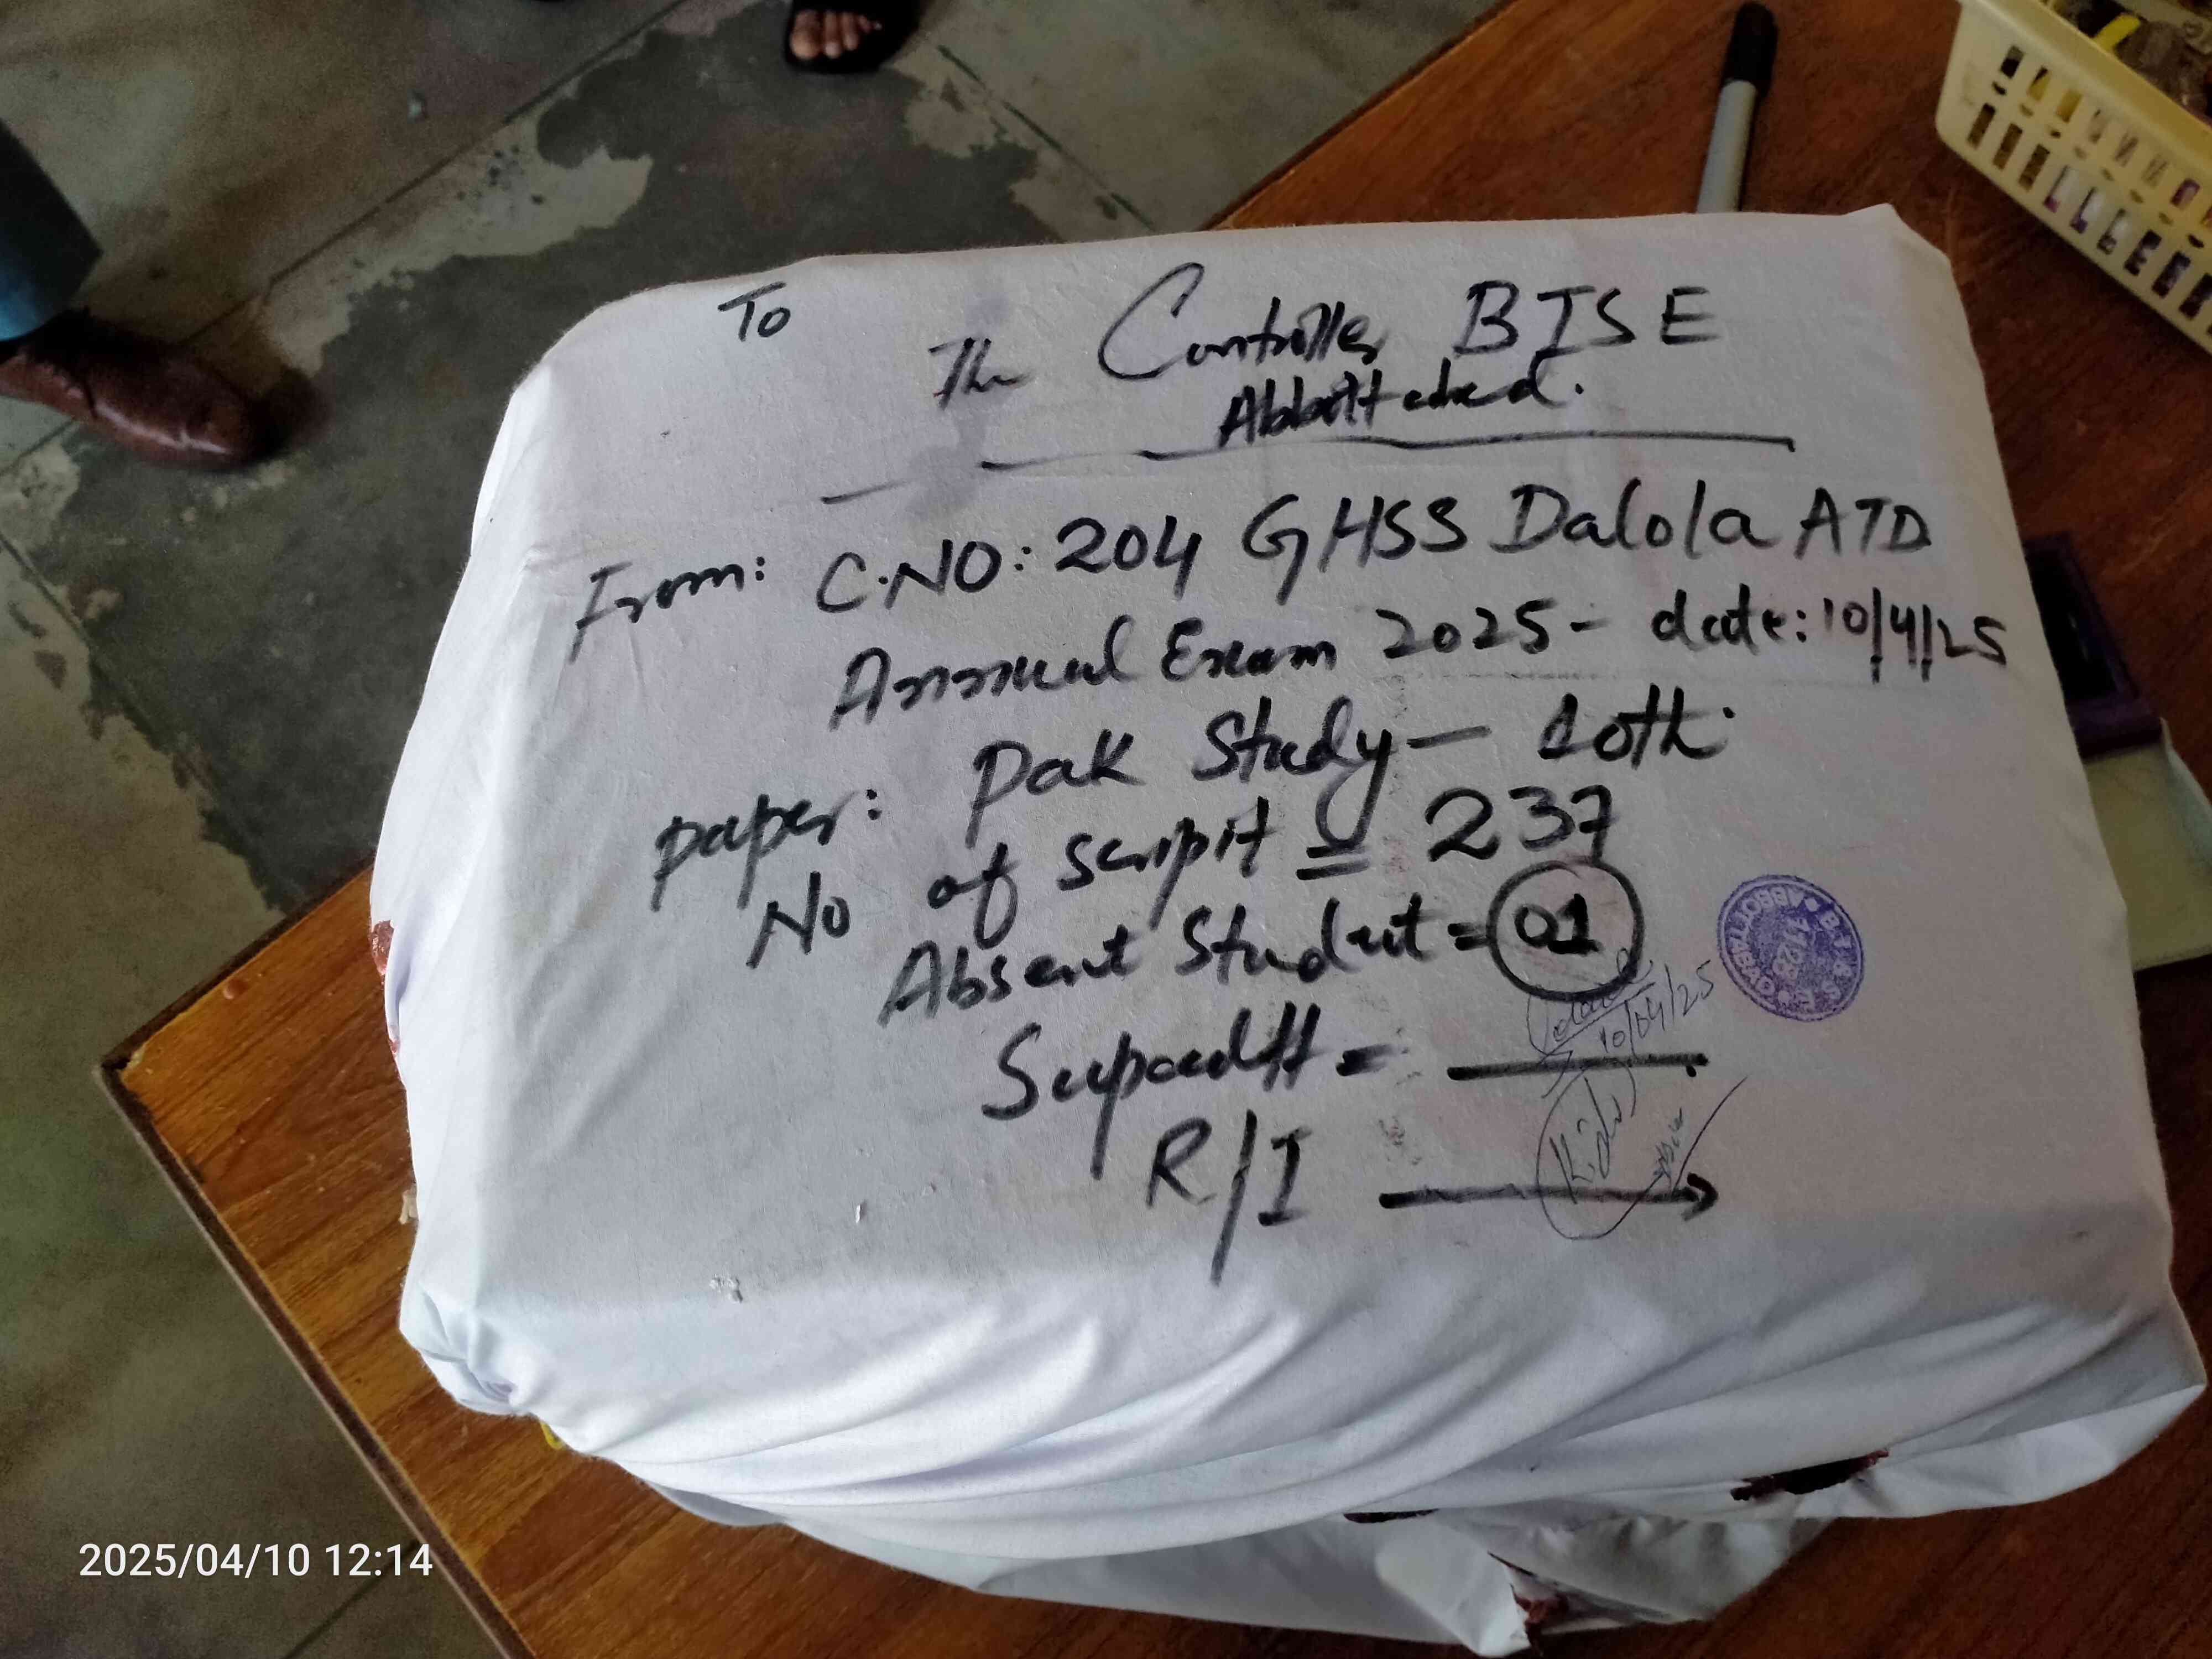 To
The Controller BISE
Abbottabad.
From: C.NO: 204 GHSS Dalola ATD
Annual Exam 2025 - date: 10/4/25
paper: Pak Study — 10th.
No of script = 237
Absent Student = 01
Supdtt =
10/04/25
R/I
B.I.S.E. ABBOTTABAD
2025/04/10 12:14